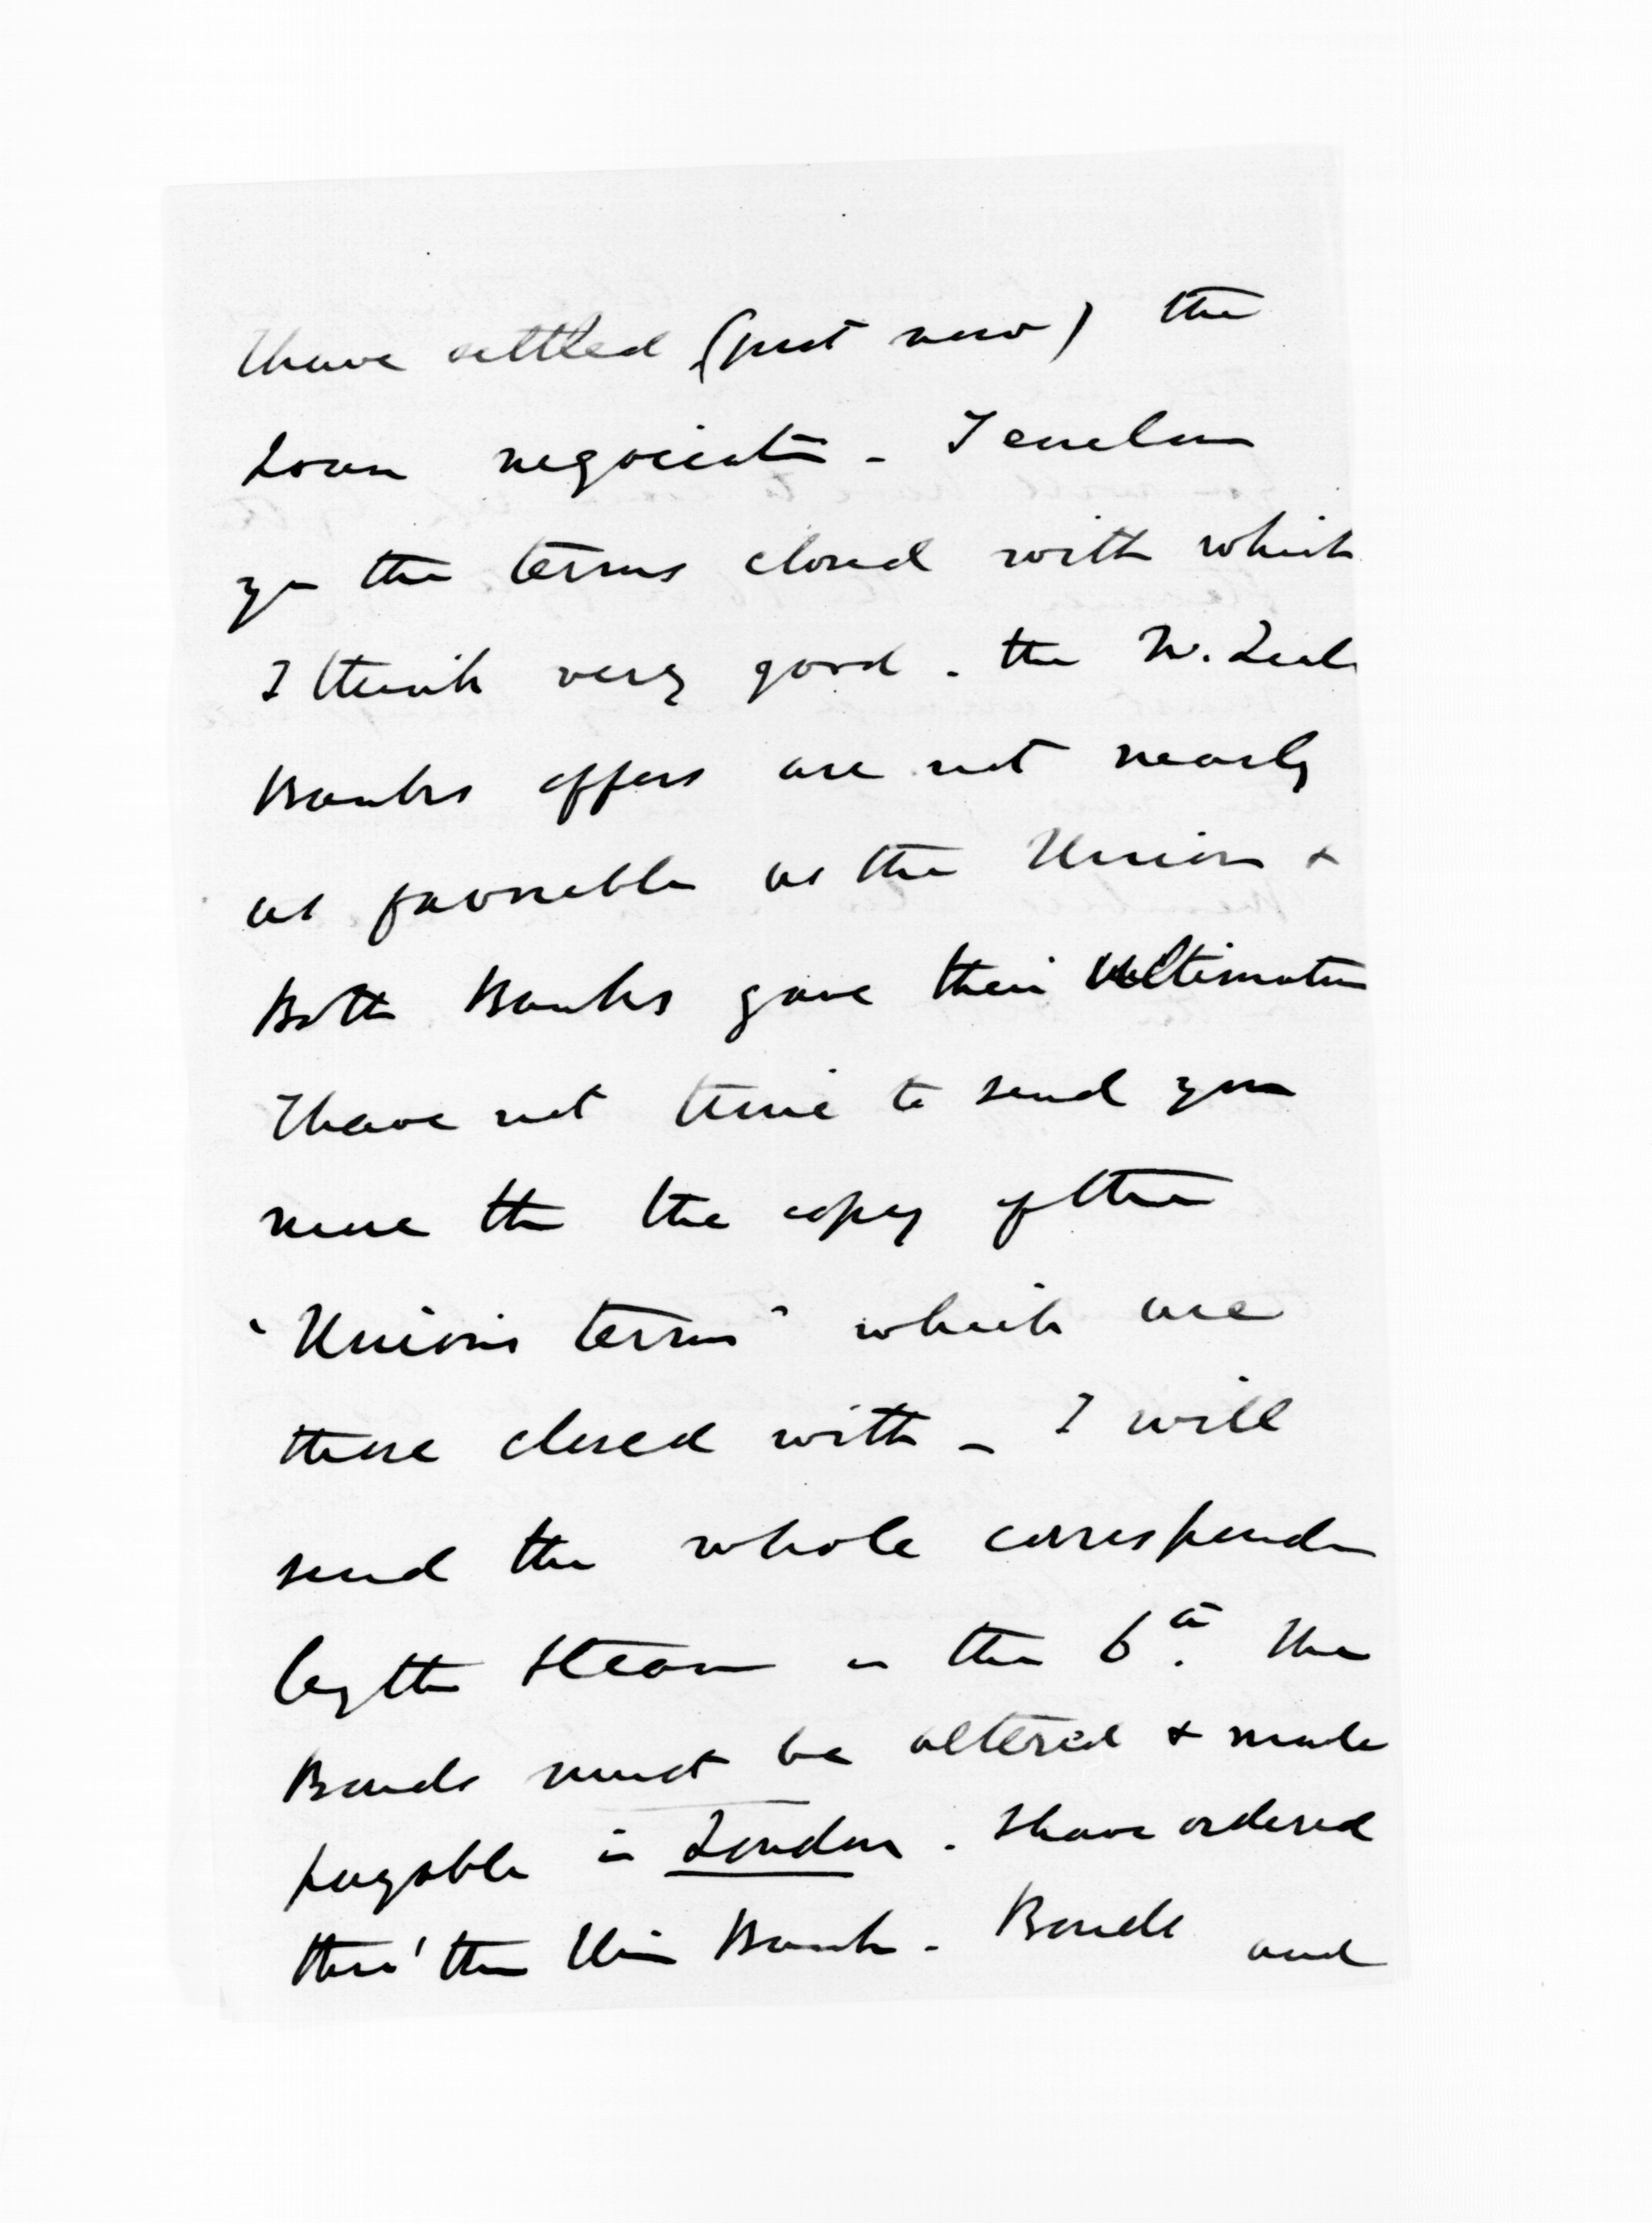 I have settled (just now) the
Loan negociatn - I enclose
you the terms closed with which
I think very good. the N. Zeal
Banks offers are not nearly
as favorable as the Union &
Both Banks gave their Ultimatum
I have not time to send you
more than the copy of the
"Union's terms" which are
those closed with - I will
send the whole correspondn
by the Steam on the 6th. The
Bonds must be altered & made
payable in London. I have ordered
thro' the Bank - Bonds and